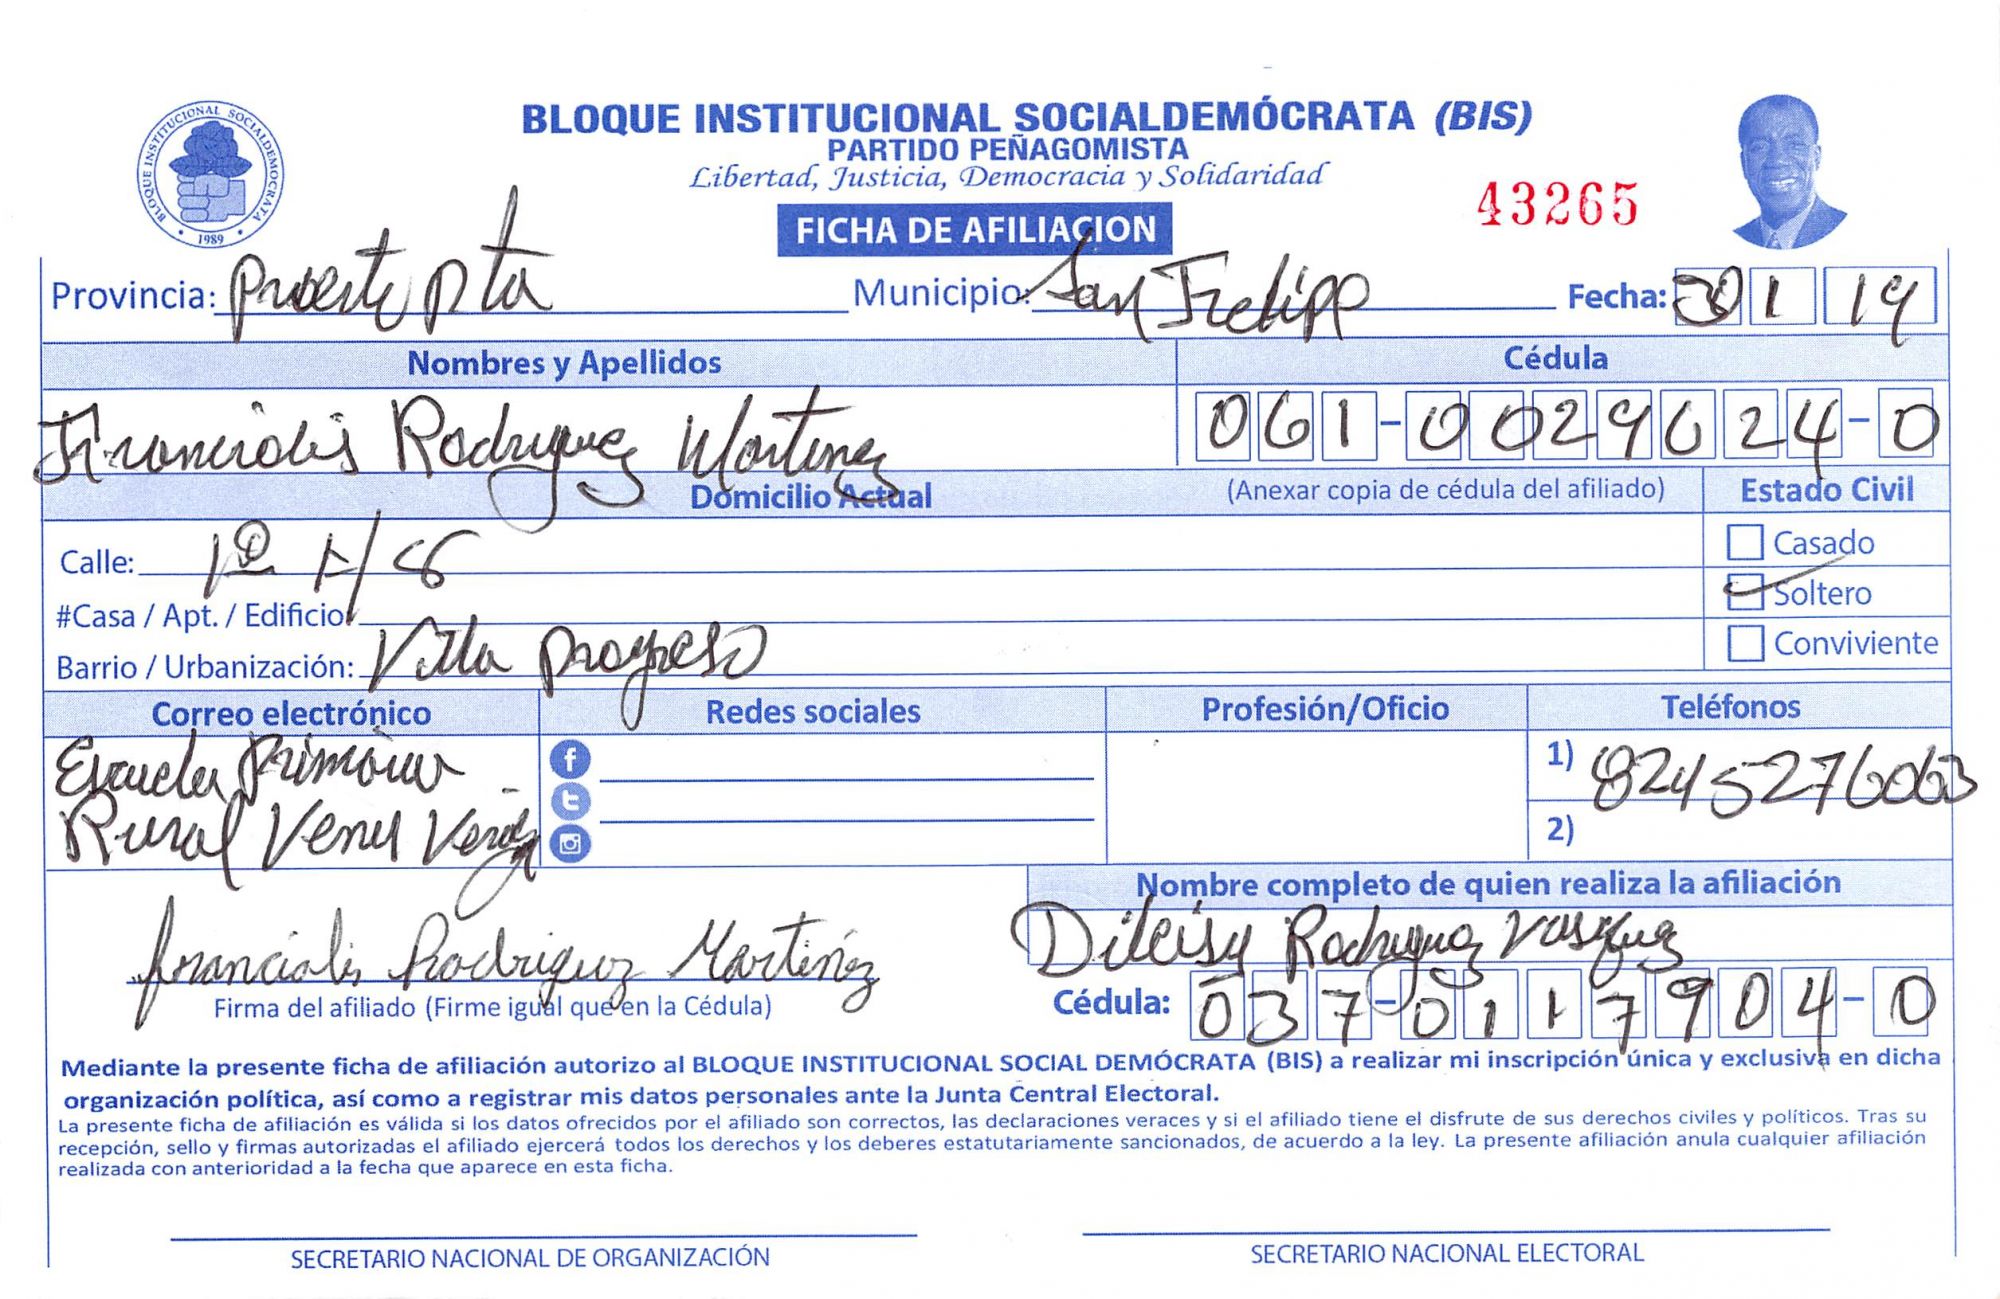 BLOQUE INSTITUCIONAL SOCIALDEMÓCRATA
1989
BLOQUE INSTITUCIONAL SOCIALDEMÓCRATA (BIS)
PARTIDO PEÑAGOMISTA
Libertad, Justicia, Democracia y Solidaridad
43265
FICHA DE AFILIACION
Provincia: Pta Municipio: San Fecha: 1 19
Nombres y Apellidos Cédula
Francialis Rodriguez Martinez 061-0029624-0
Domicilio Actual (Anexar copia de cédula del afiliado) Estado Civil
Calle: Casado
#Casa / Apt. / Edificio Soltero
Barrio / Urbanización: Villa progreso Conviviente
Correo electrónico Redes sociales Profesión/Oficio Teléfonos
Escuela Primaria 1) 8245276063
Rural 2)
Nombre completo de quien realiza la afiliación
Dileisy Rodriguez Vasquez
francialis Rodriguez Martinez
Firma del afiliado (Firme igual que en la Cédula) Cédula: 037-0117904-0
Mediante la presente ficha de afiliación autorizo al BLOQUE INSTITUCIONAL SOCIAL DEMÓCRATA (BIS) a realizar mi inscripción única y exclusiva en dicha
organización política, así como a registrar mis datos personales ante la Junta Central Electoral.
La presente ficha de afiliación es válida si los datos ofrecidos por el afiliado son correctos, las declaraciones veraces y si el afiliado tiene el disfrute de sus derechos civiles y políticos. Tras su
recepción, sello y firmas autorizadas el afiliado ejercerá todos los derechos y los deberes estatutariamente sancionados, de acuerdo a la ley. La presente afiliación anula cualquier afiliación
realizada con anterioridad a la fecha que aparece en esta ficha.
SECRETARIO NACIONAL DE ORGANIZACIÓN SECRETARIO NACIONAL ELECTORAL